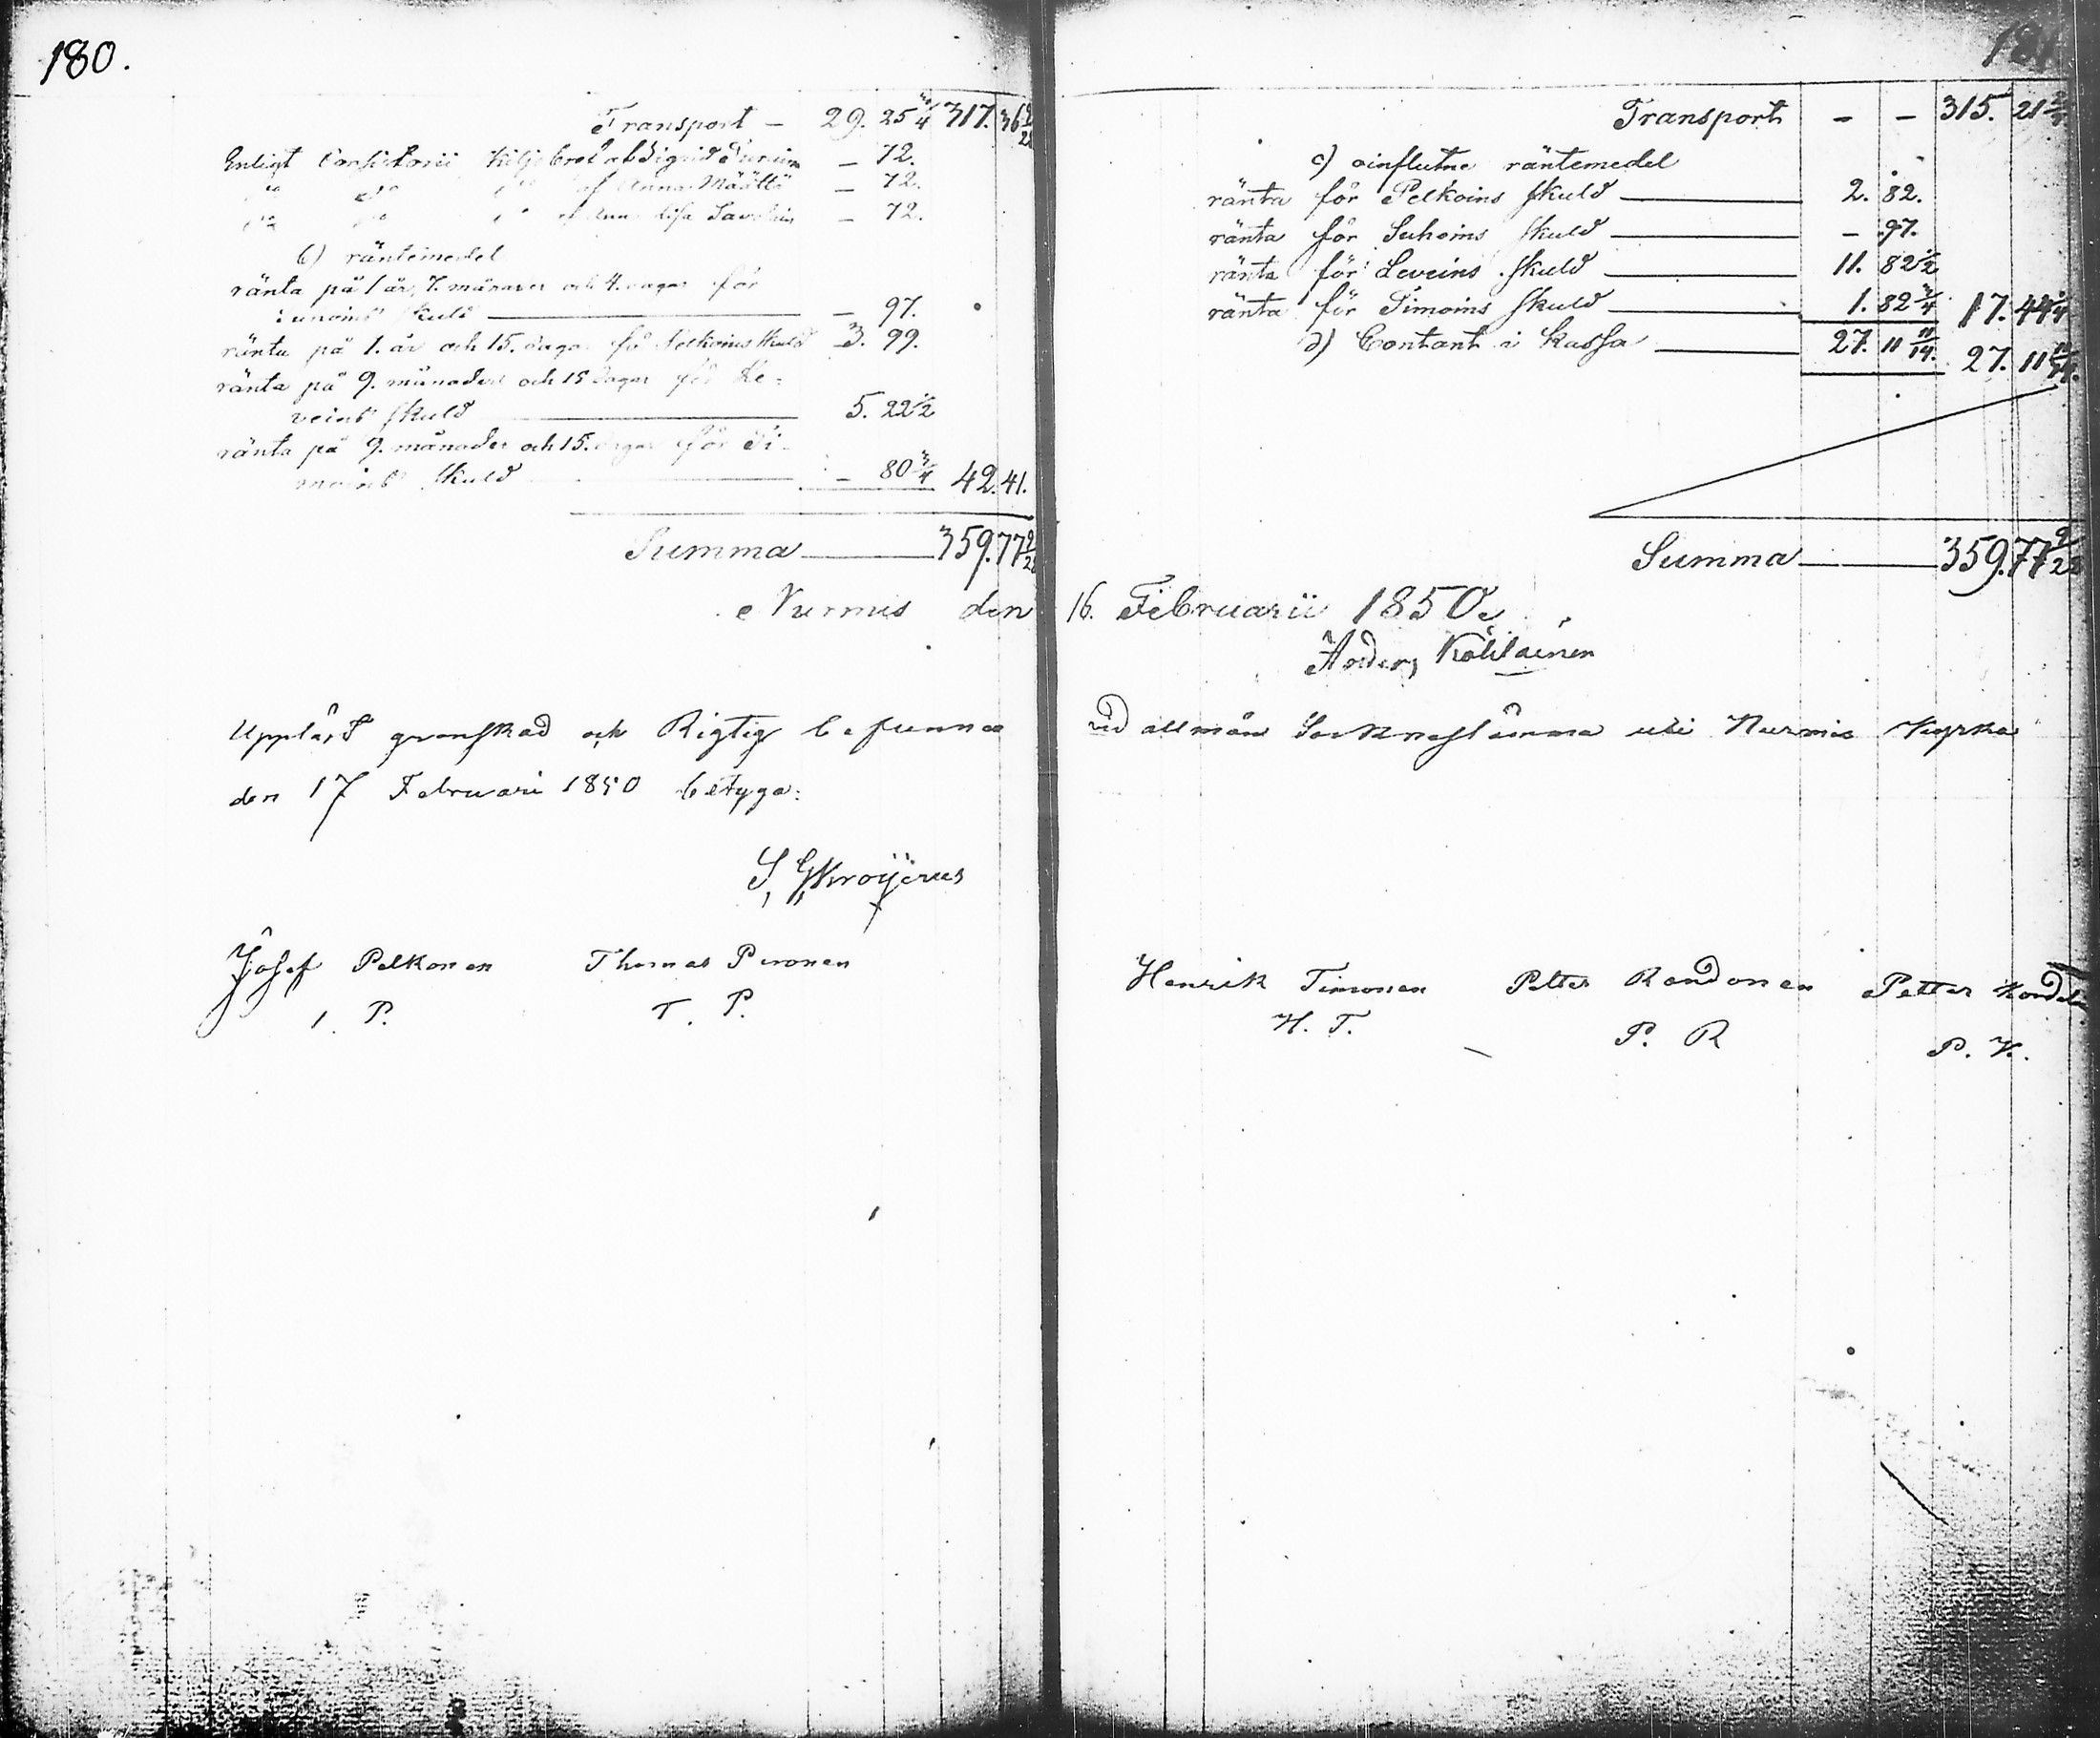 180.
Transport – 29. 25 3/4 317. 36 9/28
Enligt Consistorii Utslag af Sigrid – 72.
" d:o d:o af Anna Määttä – 72.
d:o d:o d:o af Anna Lisa Savolain – 72.
b) räntemedel
ränta på 1 år, 7. månader och 4. dagar för
skuld – 97.
ränta på 1. år och 15. dagar för Pelkoins skuld 3. 99.
ränta på 9. månader och 15 dagar för Le=
veins skuld 5. 22 1/2
ränta på 9. månader och 15. dagar för Ti-
moins skuld – 80 3/4 42. 41.
Summa 359. 77 9/28
Nurmis den
Uppläst granskad och Rigtig befunnen
den 17 Februari 1850 betyga:
S. G. Kroijerus
Josef Pelkonen Thomas Pironen
I. P. T. P.
181
Transport – – 315. 21
c) oinflutne räntemedel
ränta för Pelkoins skuld 2. 82.
ränta för Suhoins skuld – 97.
ränta för Leveins skuld 11. 82 1/2
ränta för Timoins skuld 1. 82 3/4 17. 44 1/4
d) Contant i Kassa 27. 11 11/14. 27. 11 11/14.
Summa 359. 77 9/28
16. Februarii 1850.
Anders Kälkäinen
vid allmän Socknestämma uti Nurmis Kyrka
Henrik Timonen Petter Rondonen Petter
H. T. P. R P. K.